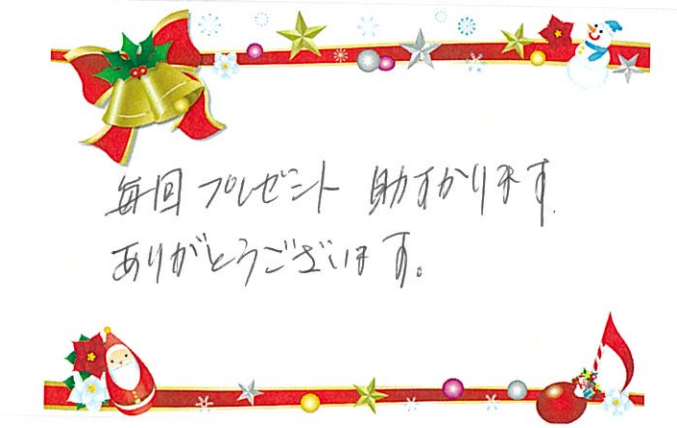 毎回プレゼント 助すかります.
ありがとうございます。